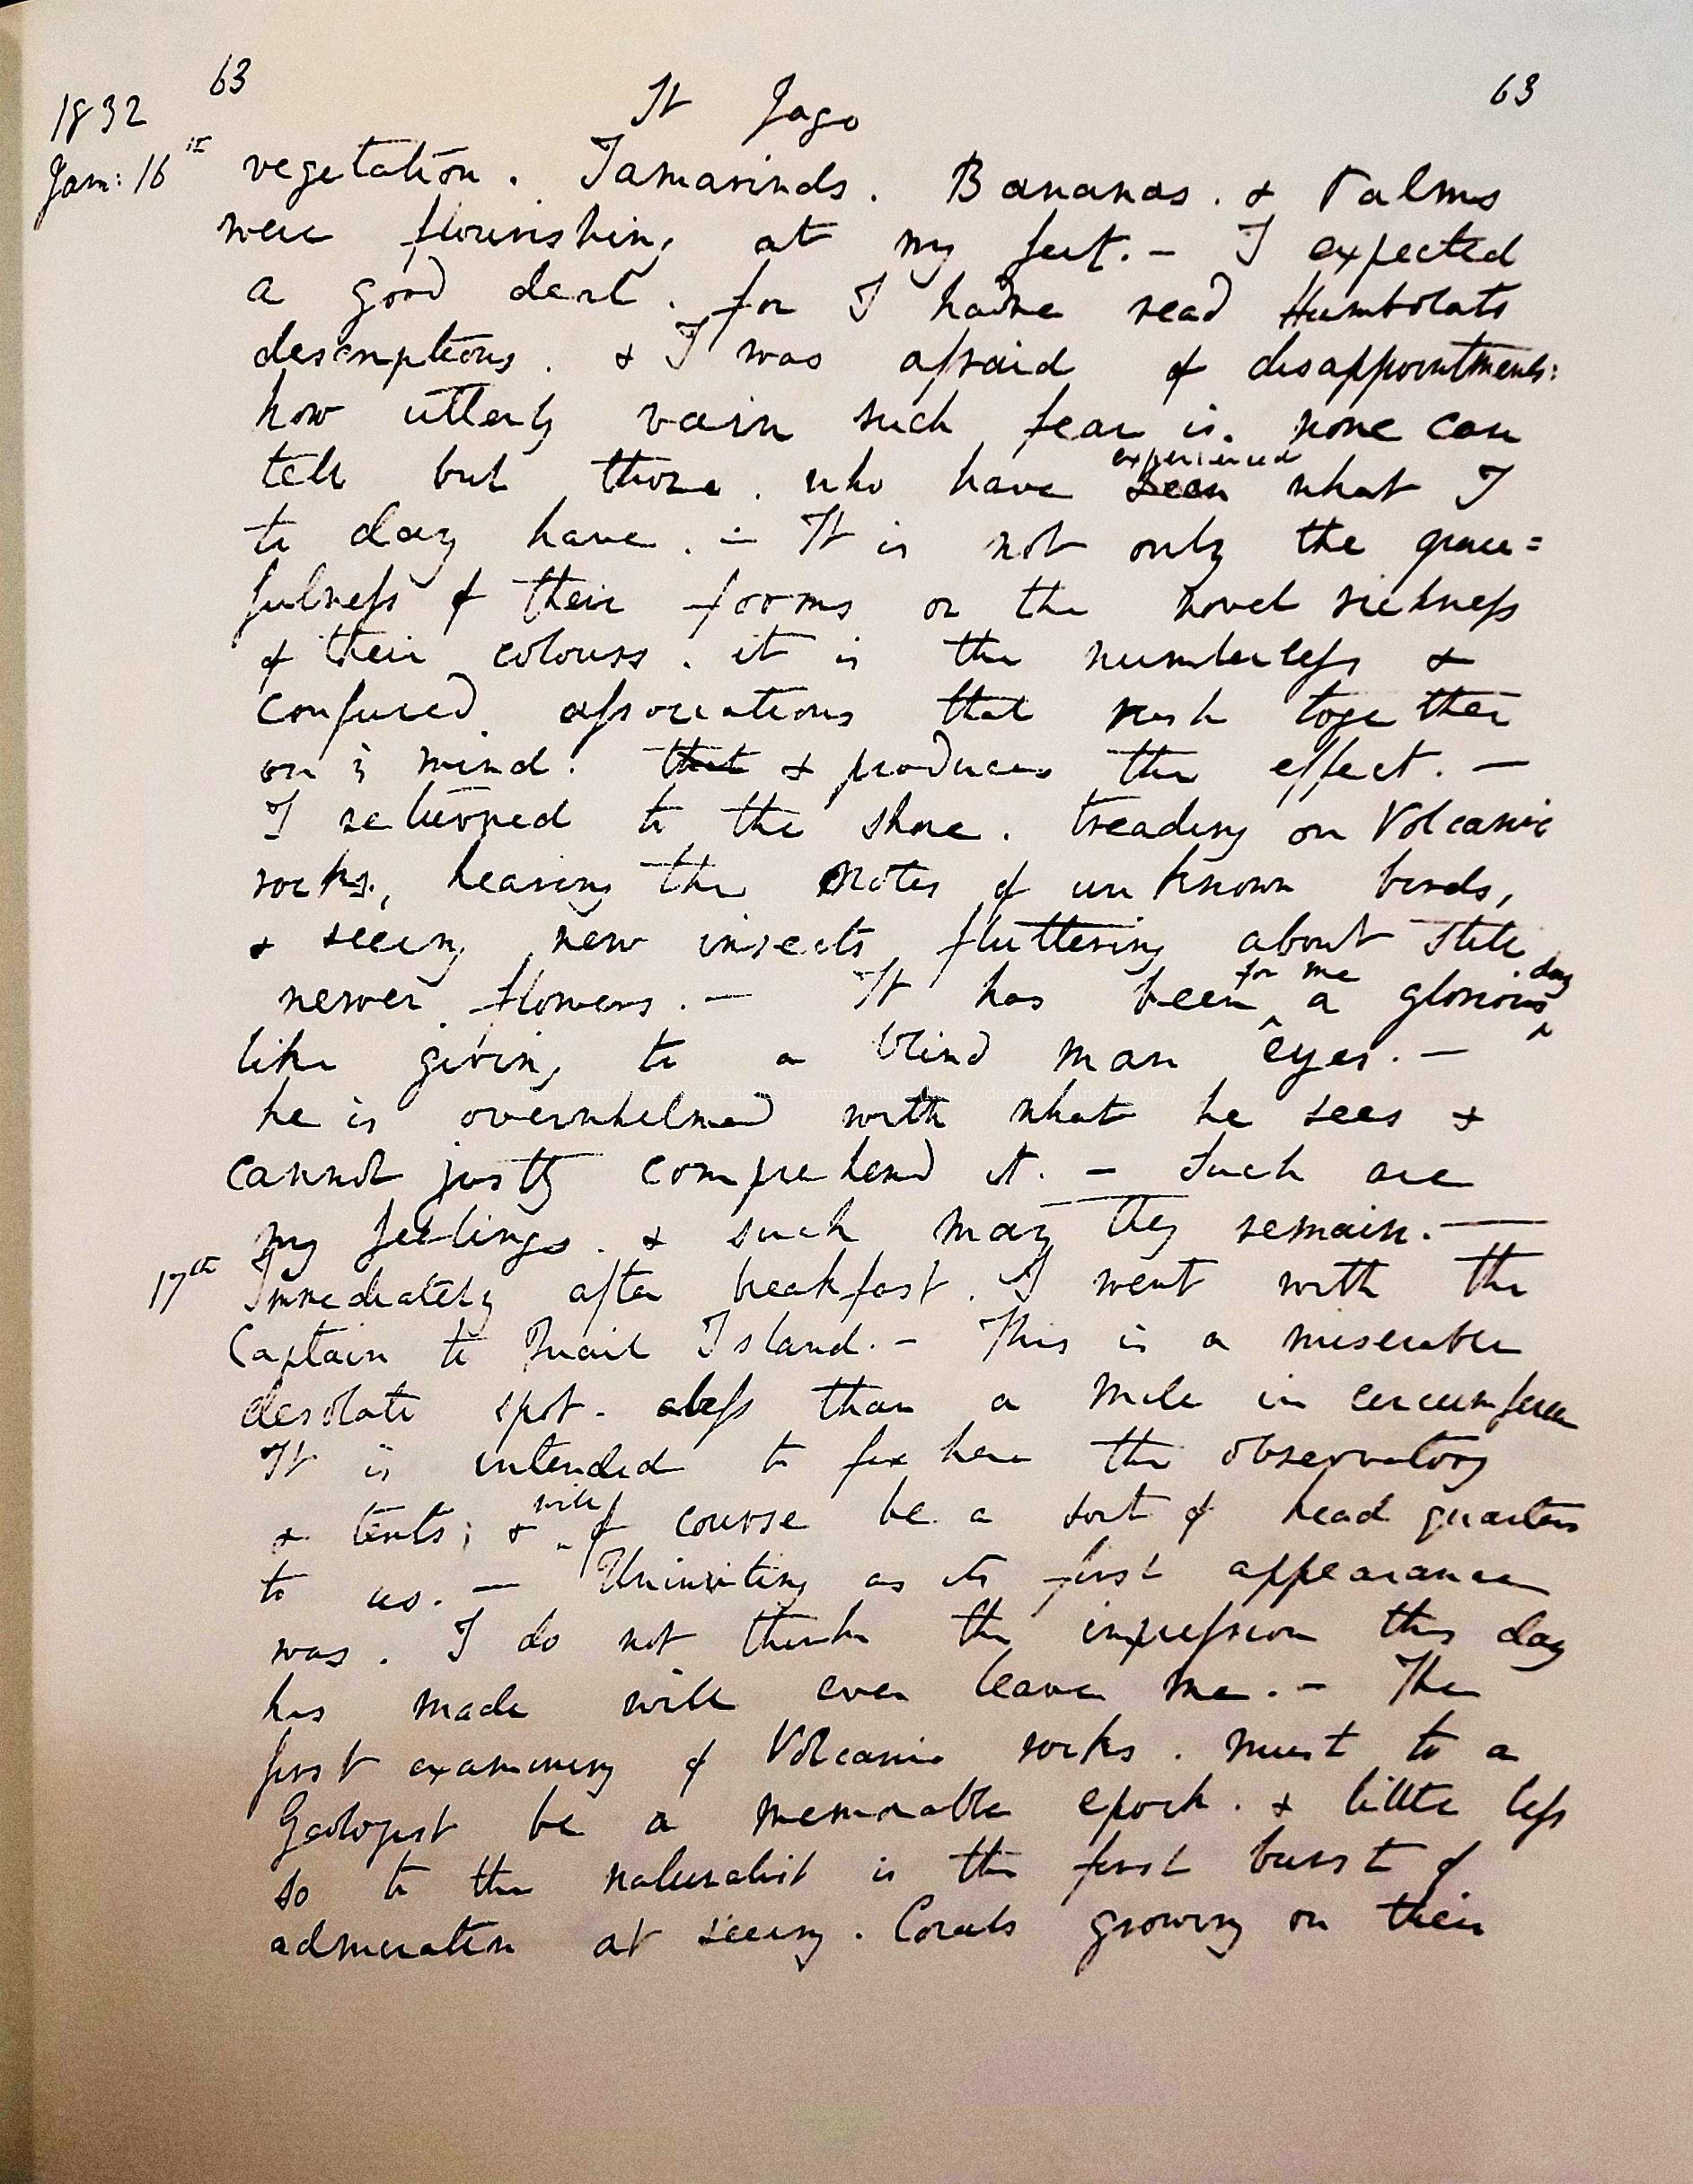 63 St Jago 63
1832
Jan: 16th vegetation. Tamarinds. Bananas. & Palms
were flourishing at my feet. — I expected
a good deal. for I had read Humboldts
descriptions. & I was afraid of disappointments:
how utterly vain such fear is. none can
tell but those. who have experienced seen what I
to day have. — It is not only the grace=
fulness of their forms or the novel richness
of their colours. it is the numberless &
confused associations that rush together
on the mind. that & produces the effect. —
I returned to the shore. treading on Volcanic
rocks, hearing the notes of unknown birds,
& seeing new insects fluttering about still
newer flowers. — It has been for me a glorious day
like giving to a blind man eyes. —
he is overwhelmed with what he sees &
cannot justly comprehend it. — Such are
my feelings. & such may they remain. —
17th Immediately after breakfast. I went with the
Captain to Quail Island. — This is a miserable
desolate spot. less than a mile in circumference
It is intended to fix here the observatory
& tents; & will of course be a sort of head quarters
to us. — Uninviting as its first appearance
was. I do not think the impression this day
has made will ever leave me. — The
first examining of Volcanic rocks. must to a
Geologist be a memorable epoch. & little less
so to the naturalist is the first burst of
admiration at seeing. Corals growing on their